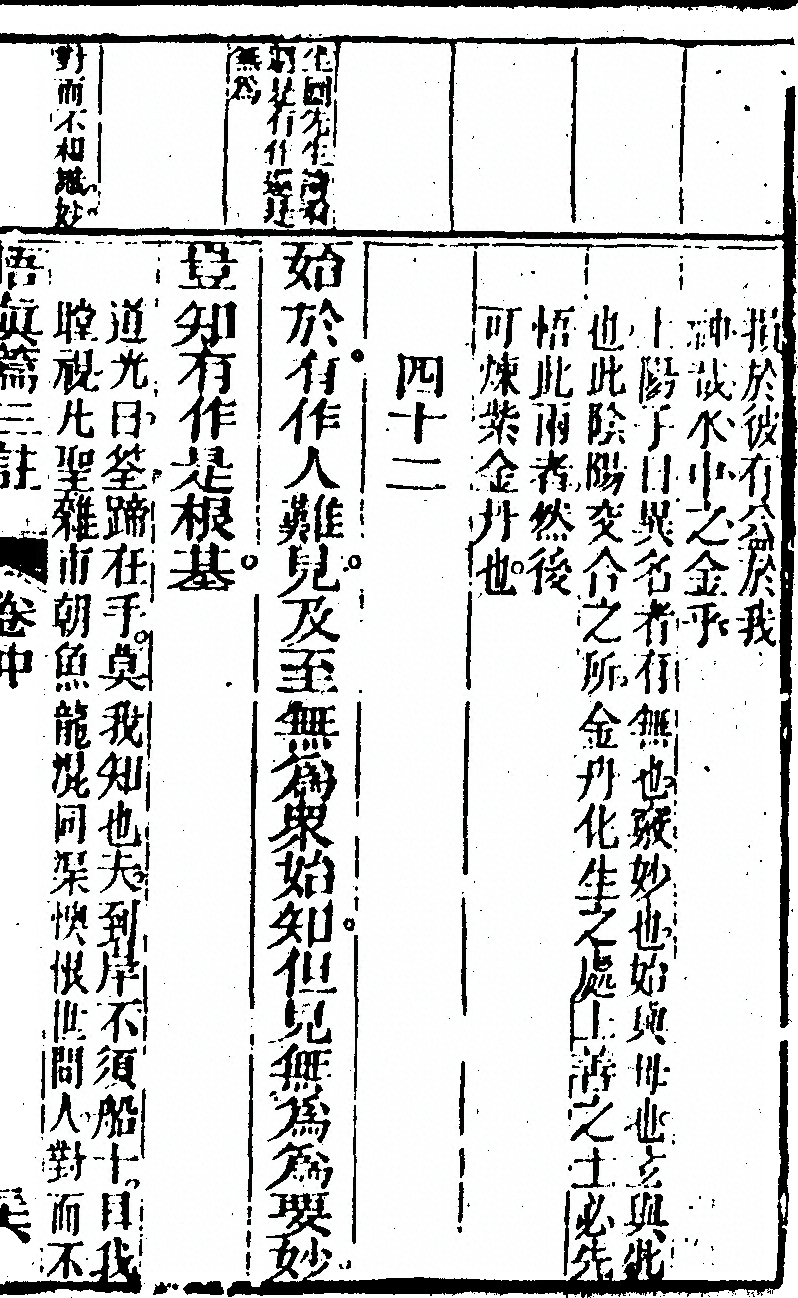 損於彼有益於我
神哉水中之金乎
上陽子曰異名者有無也竅妙也始與母也玄與牝
也此陰陽交合之所金丹化生之處上善之士必先
悟此兩者然後
可煉紫金丹也
四十二
始於有作人難見及至無為眾始知但見無為為要妙
豈知有作是根基
道光曰筌蹄在手莫我知也夫到岸不須船十目我
瞠視凡聖雜市朝魚龍混同渠懊恨世間人對而不
先生
是有作還是
無為
對而不相識妙
悟真篇三註
卷中